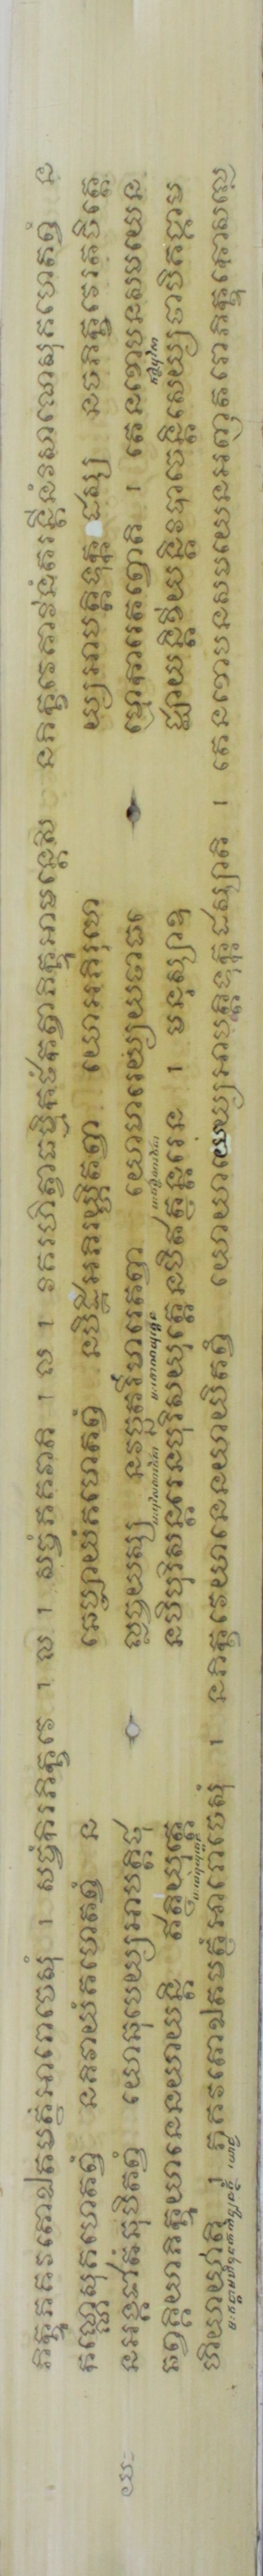 ភិក្ខូភគវតោឯតមត្ថំអារោចេសុំ ។ សច្ចំកិរភិក្ខវេ ។ ល ។ សច្ចំភគវាតិ ។ ល ។ វិគរហិត្វាធម្មិំកថំកត្វាភិក្ខូអាមន្តេសិ នភិក្ខវេគាវីនំតរន្តីនំវិសាណេសុគហេតព្វំ ន
កណ្ណេសុគហេតព្វំ នគិវាយំគហេតព្វំ ន ឆេប្បាយំគហេតព្វំ នបិដ្ឋិអភិរូហិតព្វា យោអភិរុហេ យ្យអាបត្តិទុក្កដស្ស នចភិក្ខវេរត្តចិត្តេ
នអង្គជាតំឆុបិតព្វំ យោឆុបេយ្យអាបត្តិថុ ល្លច្ចយស្ស នវច្ឆតរីមារេតព្វា យោមារេយ្យយថាធ ម្មោការេតព្វោតិ ។ តេនខោបនសមយេន
ឆព្វគ្គិយាភិក្ខូយានេនយាយន្តិ ឥត្ថិយុត្តេ នបិបុរិសន្តរេនបុរិសយុត្តេនបិឥត្ថន្តរេន ។ មនុស្សាឧ ជ្ឈាយន្តិខីយន្តិវិបាចេន្តិសេយ្យថាបិគង្គាម
ហិយាយាតិ ។ ភគវតោឯតមត្ថំអារោចេសុំ ។ នភិក្ខវេយានេនយាយិតព្វំ យោយាយេយ្យអាបត្តិទុក្កដស្សាតិ ។ តេនខោបនសមយេនអញ្ញតរោភិក្ខុកោសល្លេ